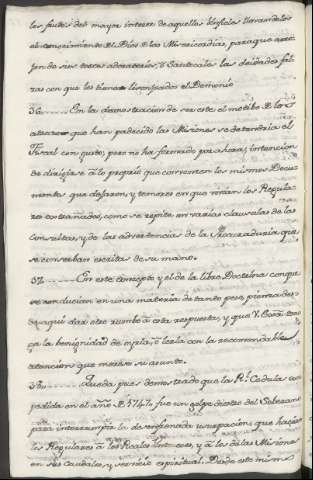 los frutos del mayor interes de aquellos Ynfieles tirandoles
al conocimiento de el Dios de las Misericordias, para que arro-
jen de sus torpes adoratorios, y Santuarios las deidades fal-
sas con que les tiene lisonjeados el Demonio
36...... En la demostracion de ser este el motibo de los
atrasos que han padecido las Misiones se detendria el
Fiscal con gusto; pero no ha formado por ahora, intencion
de dirigirse à lo preciso que convencen los mismos Docu-
mentos que dejaron, y temores en que vivian los Regula-
res extrañados, como se repite en varias clausulas de las
Consultas, y de las advertencias de la Procuraduria que
se conserban escritas de su mano.
37...... En este concepto y el de la libre Doctrina con que
se conducian en una materia de tanto peso, pienso de-
aqui dar otro rumbo à esta respuesta, y que V. Exa.
la benignidad de oirla, ò leerla con la recomendable
atencion que merece su asunto.
38...... Queda pues demostrado que la Rl. Cedula ex-
pedida en el año de 1747, fue un golpe diestro del Soberano
para interrumpir la desenfrenada usurpacion que hacian
los Regulares à los Reales y à los de las Misiones
en sus caudales, y servicio espiritual. Desde este mismo